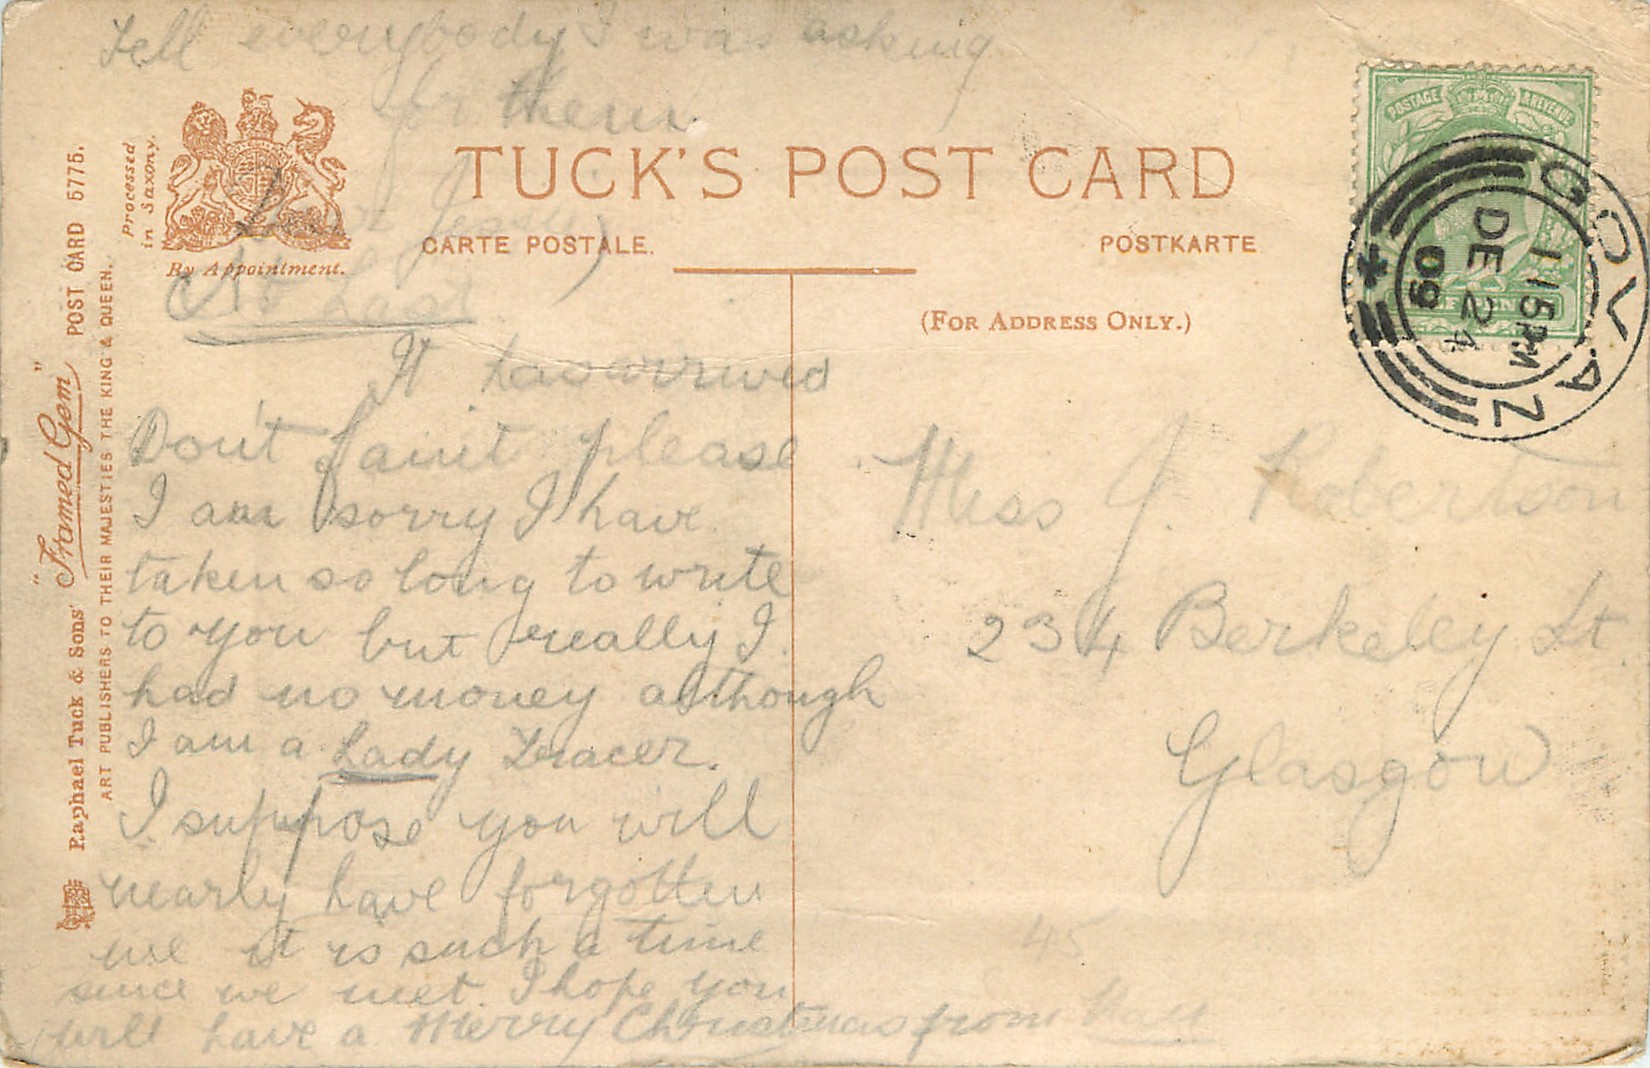 Tell everybody I was asking
for them
TUCK'S POST CARD
CARTE POSTALE.
POSTKARTE
(FOR ADDRESS ONLY.)
Processed
in Saxony.
By Appointment.
Raphael Tuck & Sons' "Framed Gem" POST CARD 5775.
ART PUBLISHERS TO THEIR MAJESTIES THE KING & QUEEN.
POSTAGE & REVENUE
GOVAN
115PM
DE 24
09
Dear
At Last
It has arrived
Don't faint please
I am sorry I have
taken so long to write
to you but really I
had no money although
I am a Lady Tracer.
I suppose you will
nearly have forgotten
me it is such a time
since we met. I hope you
will have a Merry Christmas from
Miss J. Robertson
234 Berkeley St.
Glasgow
45